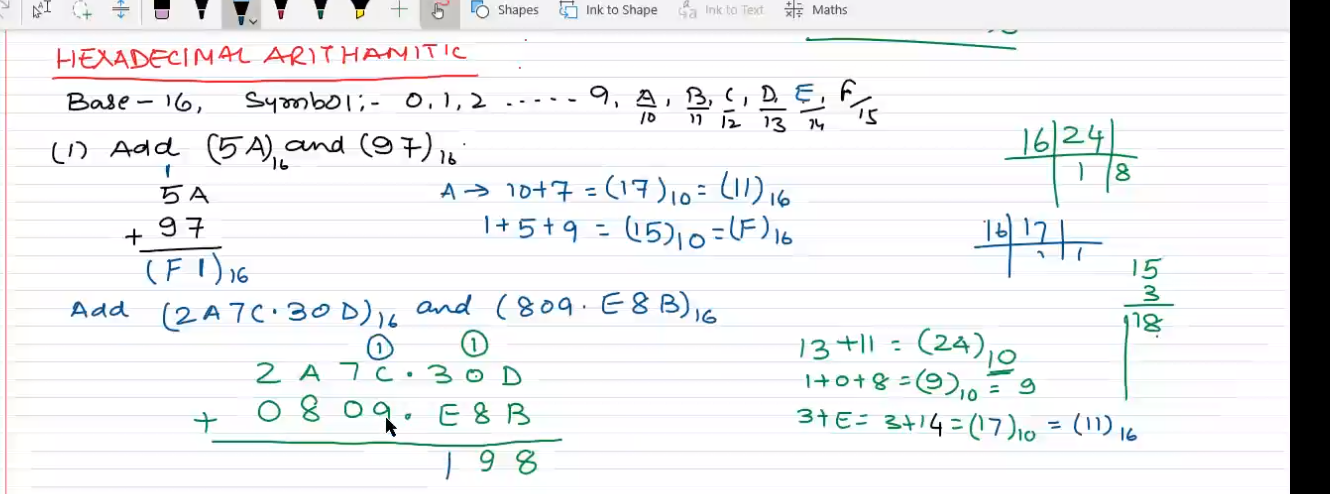 Shapes Ink to Shape Ink to Text Maths
HEXADECIMAL ARITHAMITIC
Base - 16, Symbol;- 0, 1, 2 ..... 9, A, B, C, D, E, F/15
10 11 12 13 14
(1) Add (5A)16 and (97)16.
1
5A
+ 97
(F 1)16
A → 10+7 = (17)10 = (11)16
1+5+9 = (15)10 = (F)16
16 24
1 8
16 17
1 1
15
3
18
Add (2A7C.30D)16 and (809.E8B)16
1 1
2 A 7 C . 3 0 D
+ 0 8 0 9 . E 8 B
1 9 8
13+11 = (24)10
1+0+8 = (9)10 = 9
3+E = 3+14 = (17)10 = (11)16